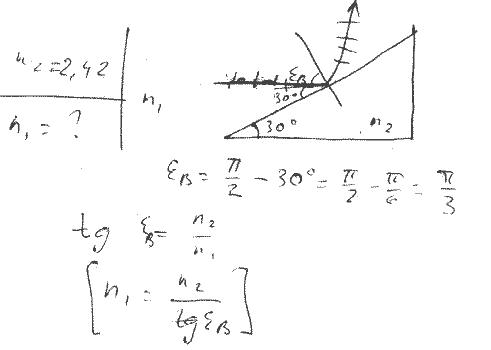 n₂ = 2,42
n₁ = ?
n₁
ε_B
30°
30°
n₂
ε_B = π/2 − 30° = π/2 − π/6 = π/3
tg ε_B = n₂/n₁
[n₁ = n₂/tg ε_B]